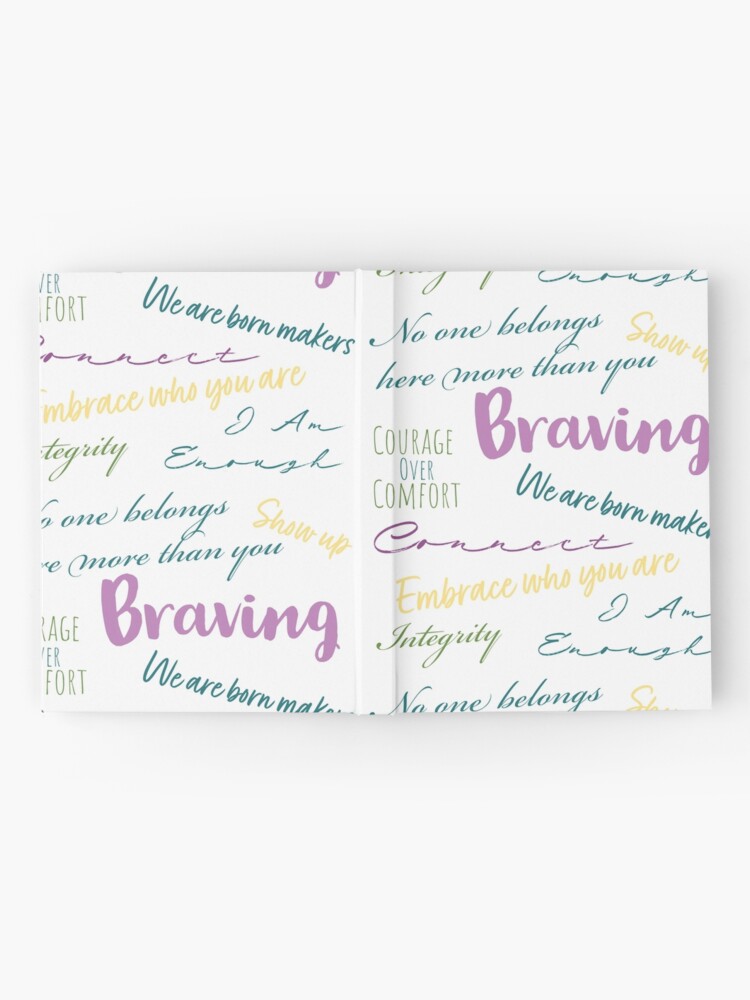 VER
FORT
We are born makers
Connect
Embrace who you are
I Am
Integrity
Enough
No one belongs
Show up
re more than you
Braving
RAGE
VER
FORT
We are born
Enough
No one belongs
Show up
here more than you
Braving
Courage
Over
Comfort
We are born makers
Connect
Embrace who you are
I Am
Integrity
Enough
No one belongs